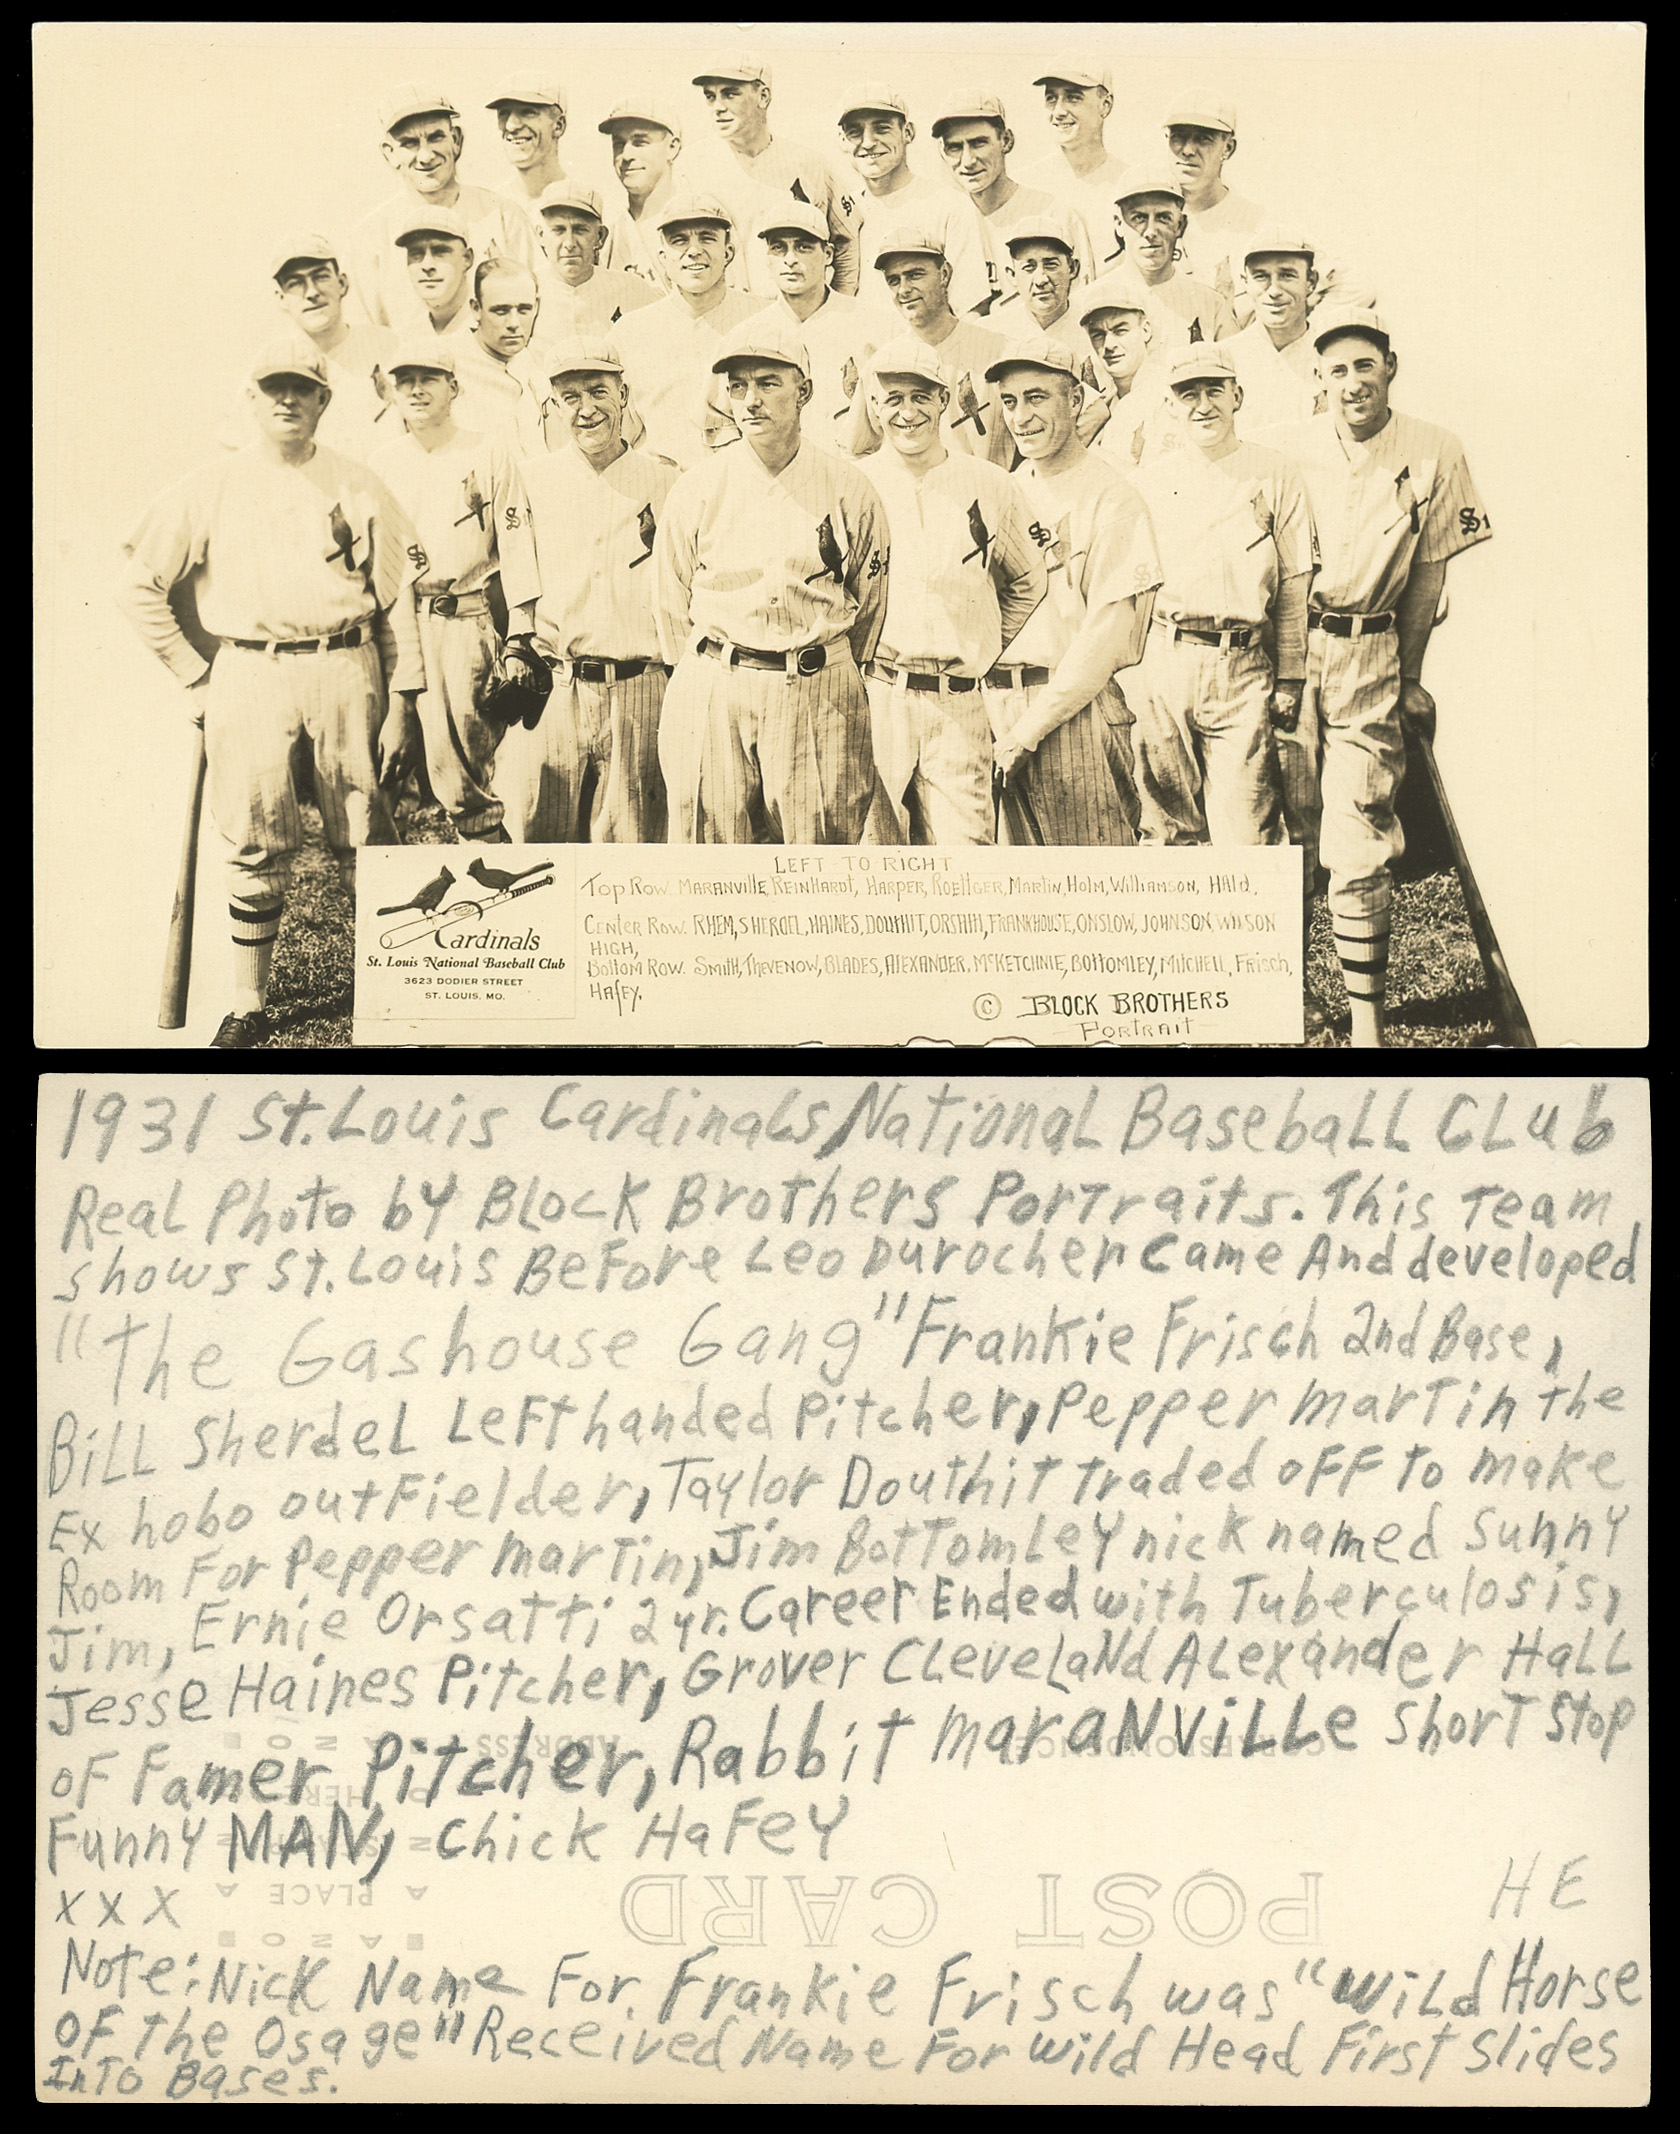 LEFT TO RIGHT
Top Row. MARANVIlle, REINHARDT, HARPER, ROEttGER, MARTIN, HOlm, WIlliAMSON, HAld.
CENTER Row. RHEM, SHERDEL, HAINES, DOUTHIT, ORSATTI, FRANKHOUSE, ONSLOW, JOHNSON, WILSON
HIGH,
BOttOM ROW. SMItH, THEVENOW, BLADES, AlEXANDER, McKETCHNIE, BOttOMlEY, MItCHEll, FRISCH,
HAfEY.
Cardinals
St. Louis National Baseball Club
3623 DODIER STREET
ST. LOUIS, MO.
© BLOCK BROTHERS
PORTRAIT
1931 St. Louis Cardinals, National Baseball Club
Real Photo by Block Brothers Portraits. This Team
shows St. Louis Before Leo Durocher Came And developed
"The Gashouse Gang" Frankie Frisch 2nd Base,
Bill Sherdel Left handed Pitcher, Pepper Martin the
Ex hobo outfielder, Taylor Douthit traded off to make
Room For Pepper Martin, Jim Bottomley nick named Sunny
Jim, Ernie Orsatti 2 yr. Career Ended with Tuberculosis,
Jesse Haines Pitcher, Grover Cleveland Alexander Hall
of Famer Pitcher, Rabbit Maranville Short Stop
Funny MAN, Chick Hafey
xxx
HE
Note: Nick Name For Frankie Frisch was "Wild Horse
of the Osage" Received Name For Wild Head First Slides
InTo Bases.
POST CARD
CORRESPONDENCE
ADDRESS
PLACE
STAMP
HERE
AZO